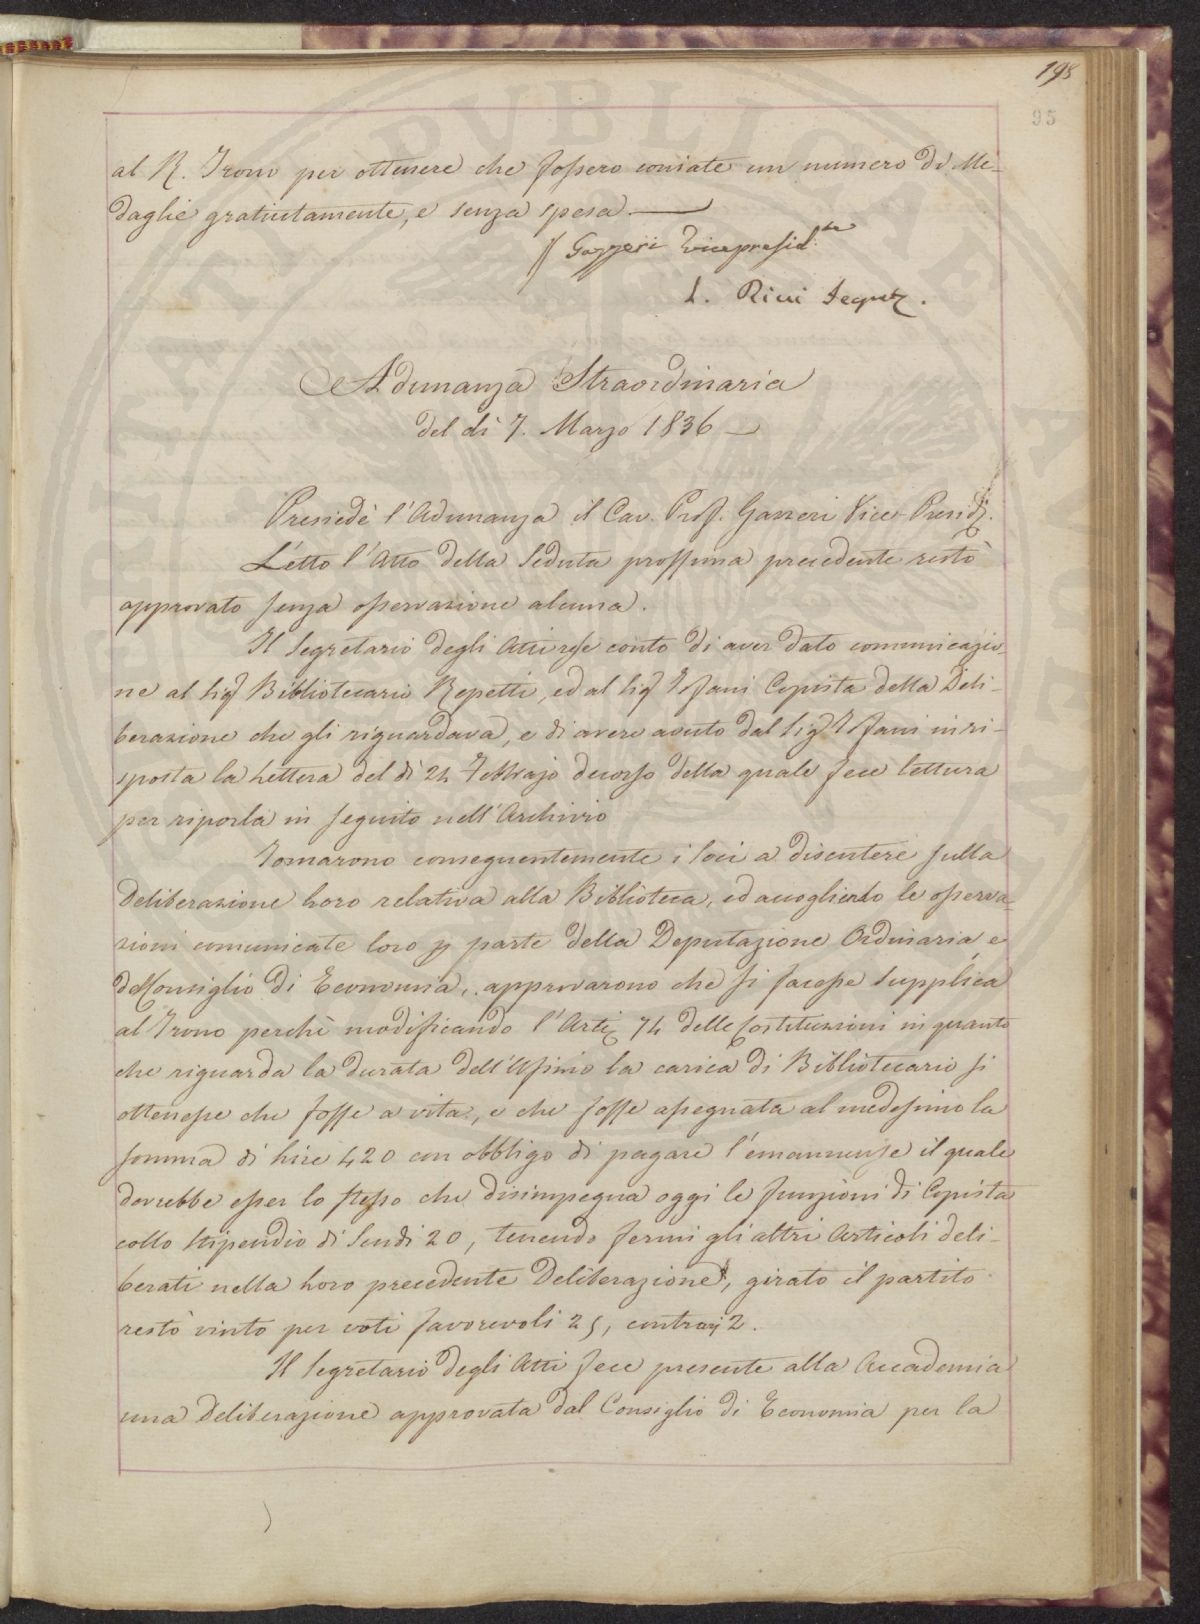 198
95
al R. Trono per ottenere che fossero coniate un numero di Me-
daglie gratuitamente, e senza spesa
Gazzeri Vicepresid.te
L. Ricci Segret.
Adunanza Straordinaria
del dì 7. Marzo 1836
Presiedè l'Adunanza il Cav. Prof. Gazzeri Vice-Presid.
Letto l'Atto della Seduta prossima precedente restò
approvato senza osservazione alcuna.
Il Segretario degli Atti rese conto di aver dato comunicazio-
ne al Sig. Bibliotecario Repetti, ed al Sig. Tofani Copista della Deli-
berazione che gli riguardava, e di avere avuto dal Sig. Tofani in ri-
sposta la Lettera del dì 24 Febbrajo decorso della quale fece lettura
per riporla in seguito nell'Archivio
Tornarono conseguentemente i Soci a discutere sulla
Deliberazione Loro relativa alla Biblioteca, ed accogliendo le osserva-
zioni comunicate loro p parte della Deputazione Ordinaria e
del Consiglio di Economia, approvarono che si facesse Supplica
al Trono perchè modificando l'Arti. 74 delle Costituzioni in quanto
che riguarda la durata dell'Ufizio la carica di Bibliotecario si
ottenesse che fosse a vita, e che fosse assegnata al medesimo la
somma di Lire 420 con obbligo di pagare l'emanuense il quale
dovrebbe esser lo stesso che disimpegna oggi le funzioni di Copista
collo Stipendio di Scudi 20, tenendo fermi gli altri Articoli deli-
berati nella Loro precedente Deliberazione, girato il partito
restò vinto per voti favorevoli 25, contrarj 2.
Il Segretario degli Atti fece presente alla Accademia
una Deliberazione approvata dal Consiglio di Economia per la
PVBLICAE